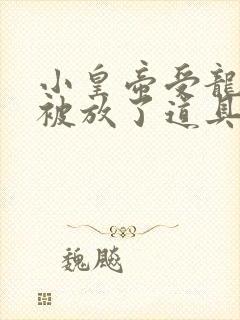 小皇帝受龍
被放了道具
魏飈